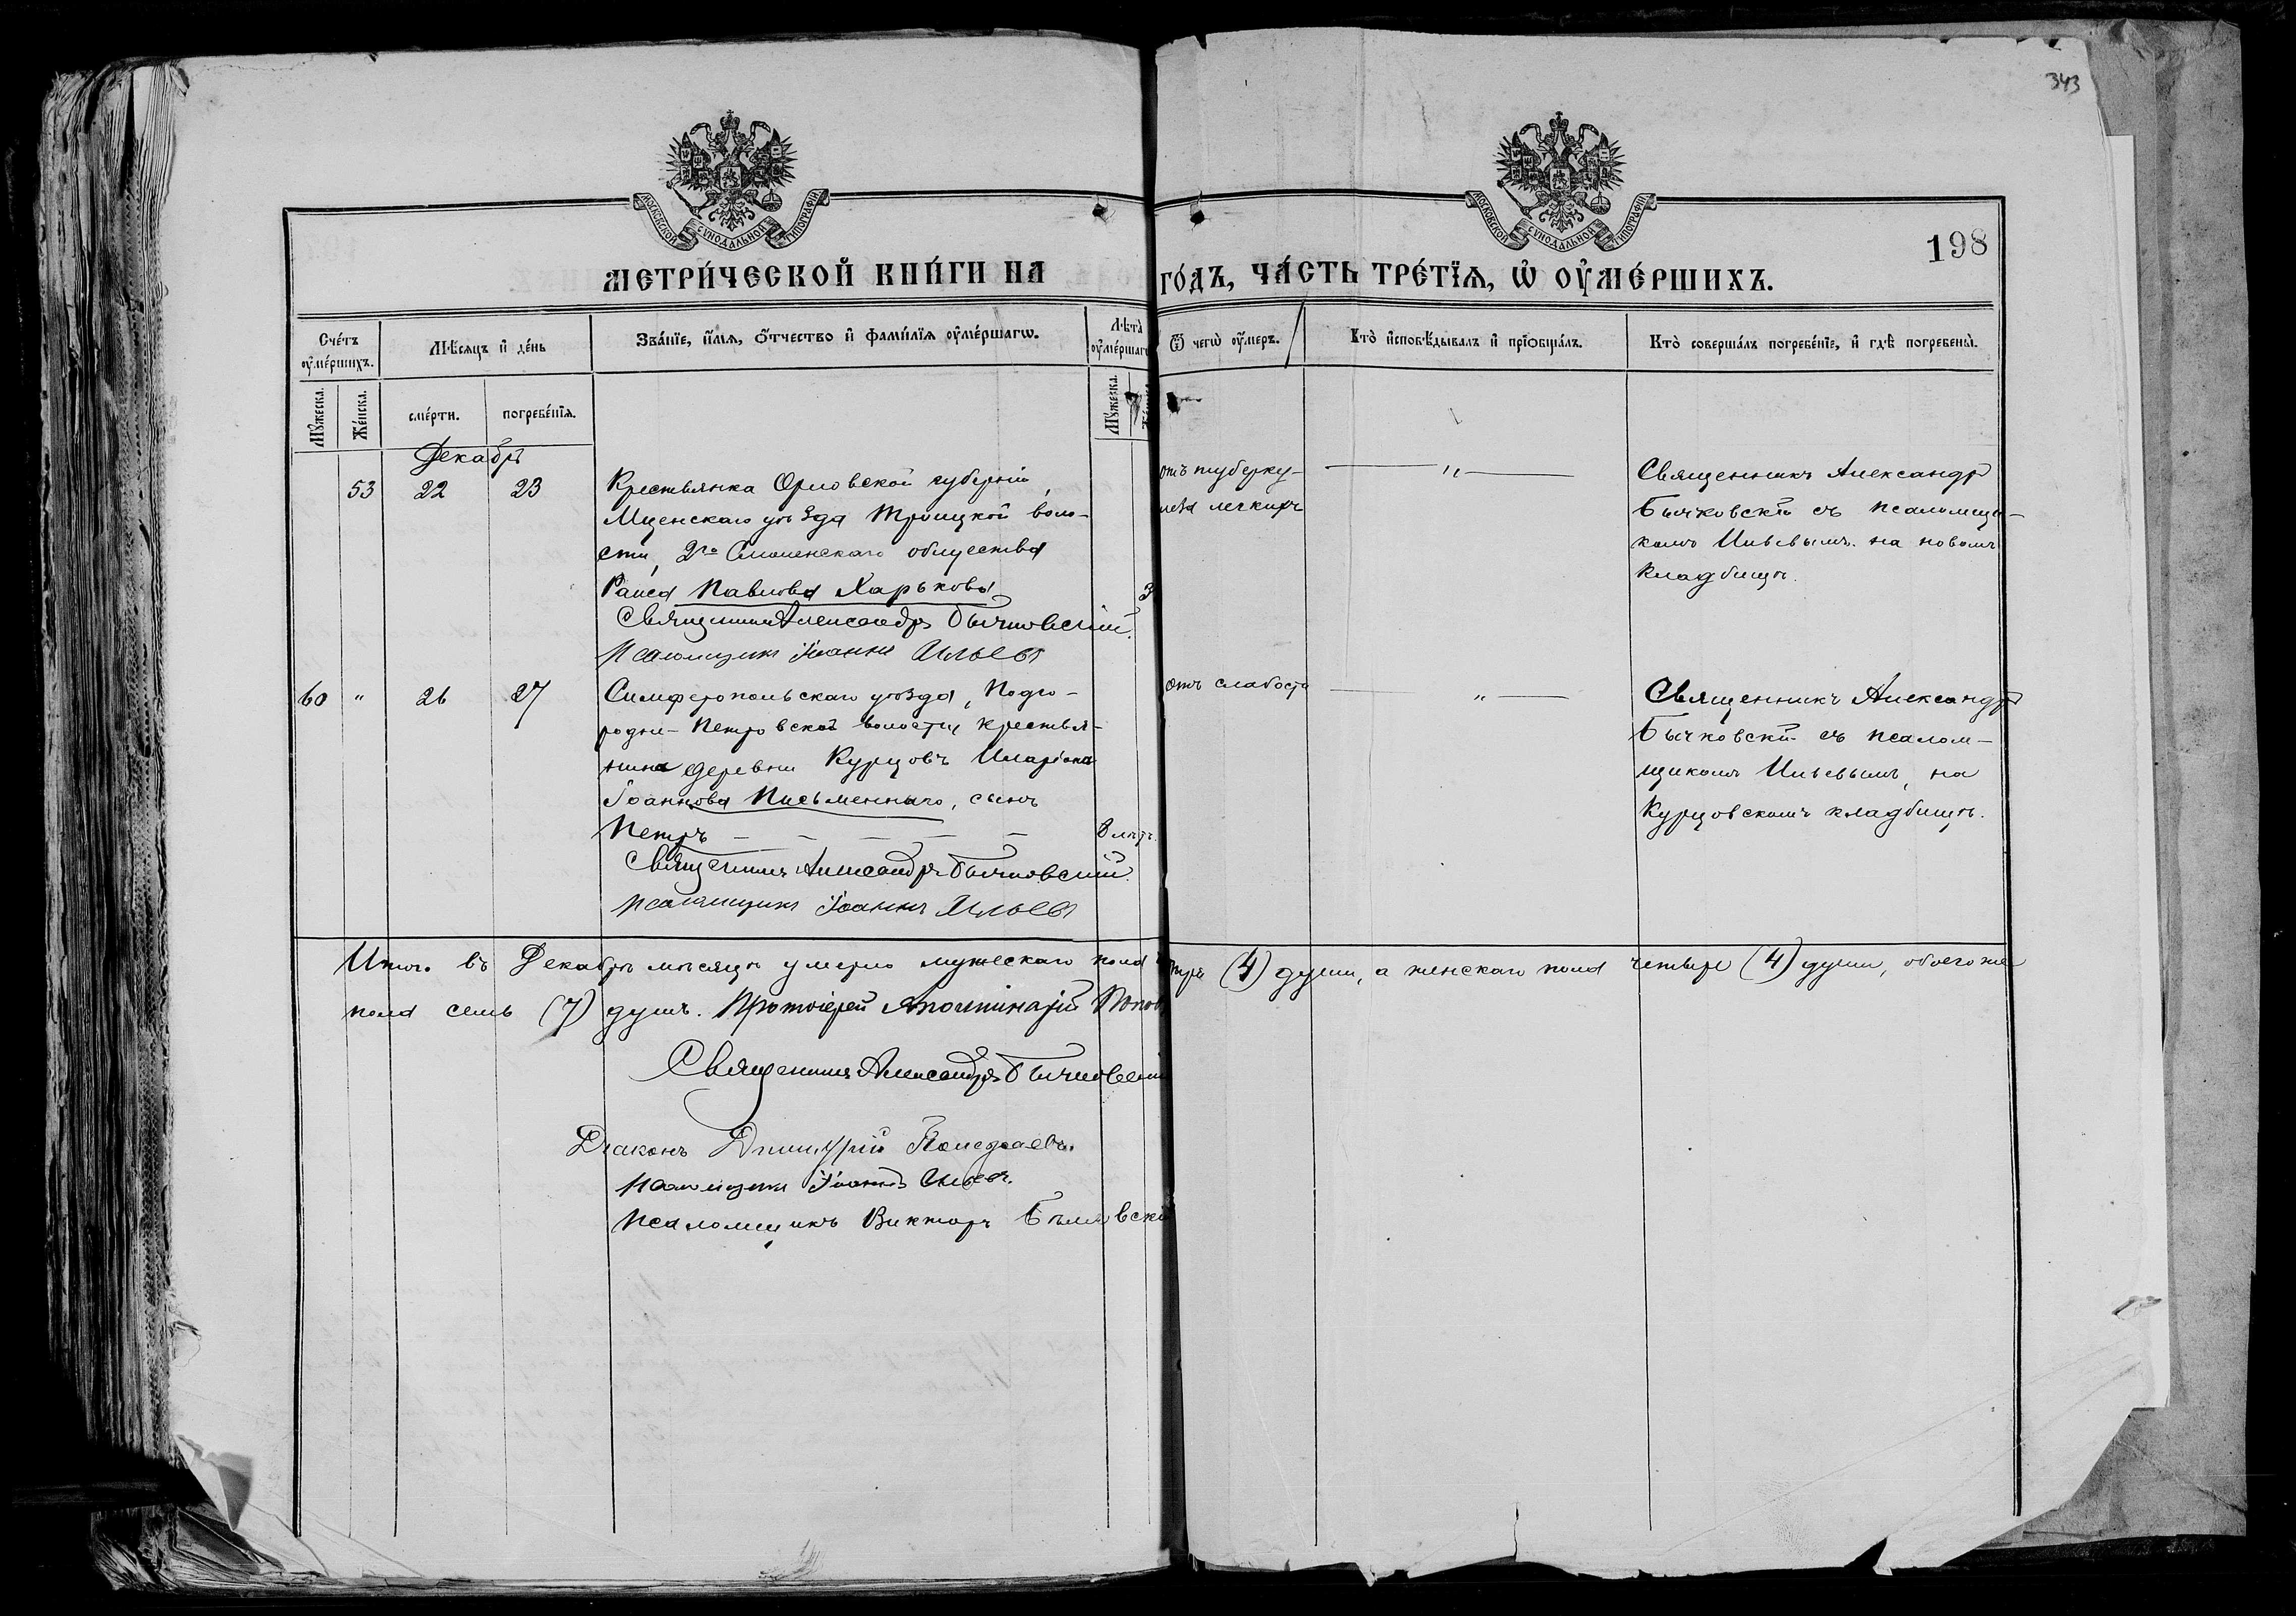 343
МОСКОВСКОЙ СУНОДАЛЬНОЙ ТИПОГРАФІИ
МОСКОВСКОЙ СУНОДАЛЬНОЙ ТИПОГРАФІИ
198
МЕТРИ́ЧЕСКОЙ КНИ́ГИ НА ГО́ДЪ, ЧА́СТЬ ТРЕ́ТЇѦ, Ѡ ОУ҆МЕ́РШИХЪ.
Сче́тъ оу҆ме́ршихъ.
Мѣ́сяцъ и҆ де́нь
Зва́нїе, и҆́мѧ, ѻ҆́тчество и҆ фами́лїѧ оу҆ме́ршагѡ.
Лѣ́та оу҆ме́ршаг
Ѿ чегѡ̀ оу҆́меръ.
Кто̀ и҆сповѣ́дывалъ и҆ прїѡбща́лъ.
Кто̀ соверша́лъ погребе́нїе, и҆ гдѣ̀ погребены̀.
Мꙋ́жеска.
Же́нска.
сме́рти.
погребе́нїѧ.
Мꙋ́жеска.
Декабрь
53 22 23
Крестьянка Орловской губерніи,
Мценскаго уѣзда Троицкой воло-
сти, 2го Смоленскаго общества
Раиса Павлова Харькова
3
Священникъ Александръ Бычковскій.
Псаломщикъ Іоаннъ Ильевъ
отъ туберку-
леза легкихъ
"
Священникъ Александръ
Бычковскій съ псаломщи-
комъ Ильевымъ на новомъ
кладбищѣ.
60 " 26 27
Симферопольскаго уѣзда, Подго-
родне-Петровской волости, крестья-
нина деревни Курцовъ Иларіона
Іоаннова Письменнаго, сынъ
Петръ
8 лѣтъ.
Священникъ Александръ Бычковскій.
Псаломщикъ Іоаннъ Ильевъ
отъ слабости
"
Священникъ Александръ
Бычковскій съ псалом-
щикомъ Ильевымъ, на
Курцовскомъ кладбищѣ.
Итого въ Декабрѣ мѣсяцѣ умерло мужескаго пола души, а женскаго пола четыре (4) души, обоего же
пола семь (7) душъ. Протоіерей Аполлинарій Попов
Священникъ Александръ Бычковскій
Діаконъ Димитрій
Псаломщикъ Іоаннъ Ильевъ.
Псаломщикъ Викторъ